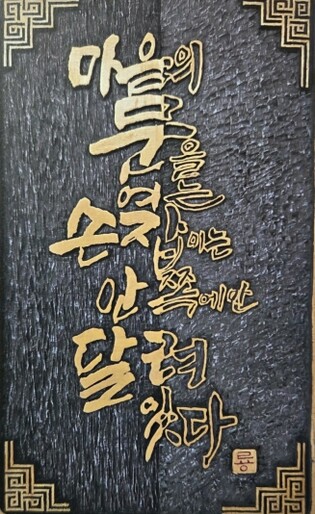 마음의
문을
여는
손잡이는
안쪽에만
달려
있다